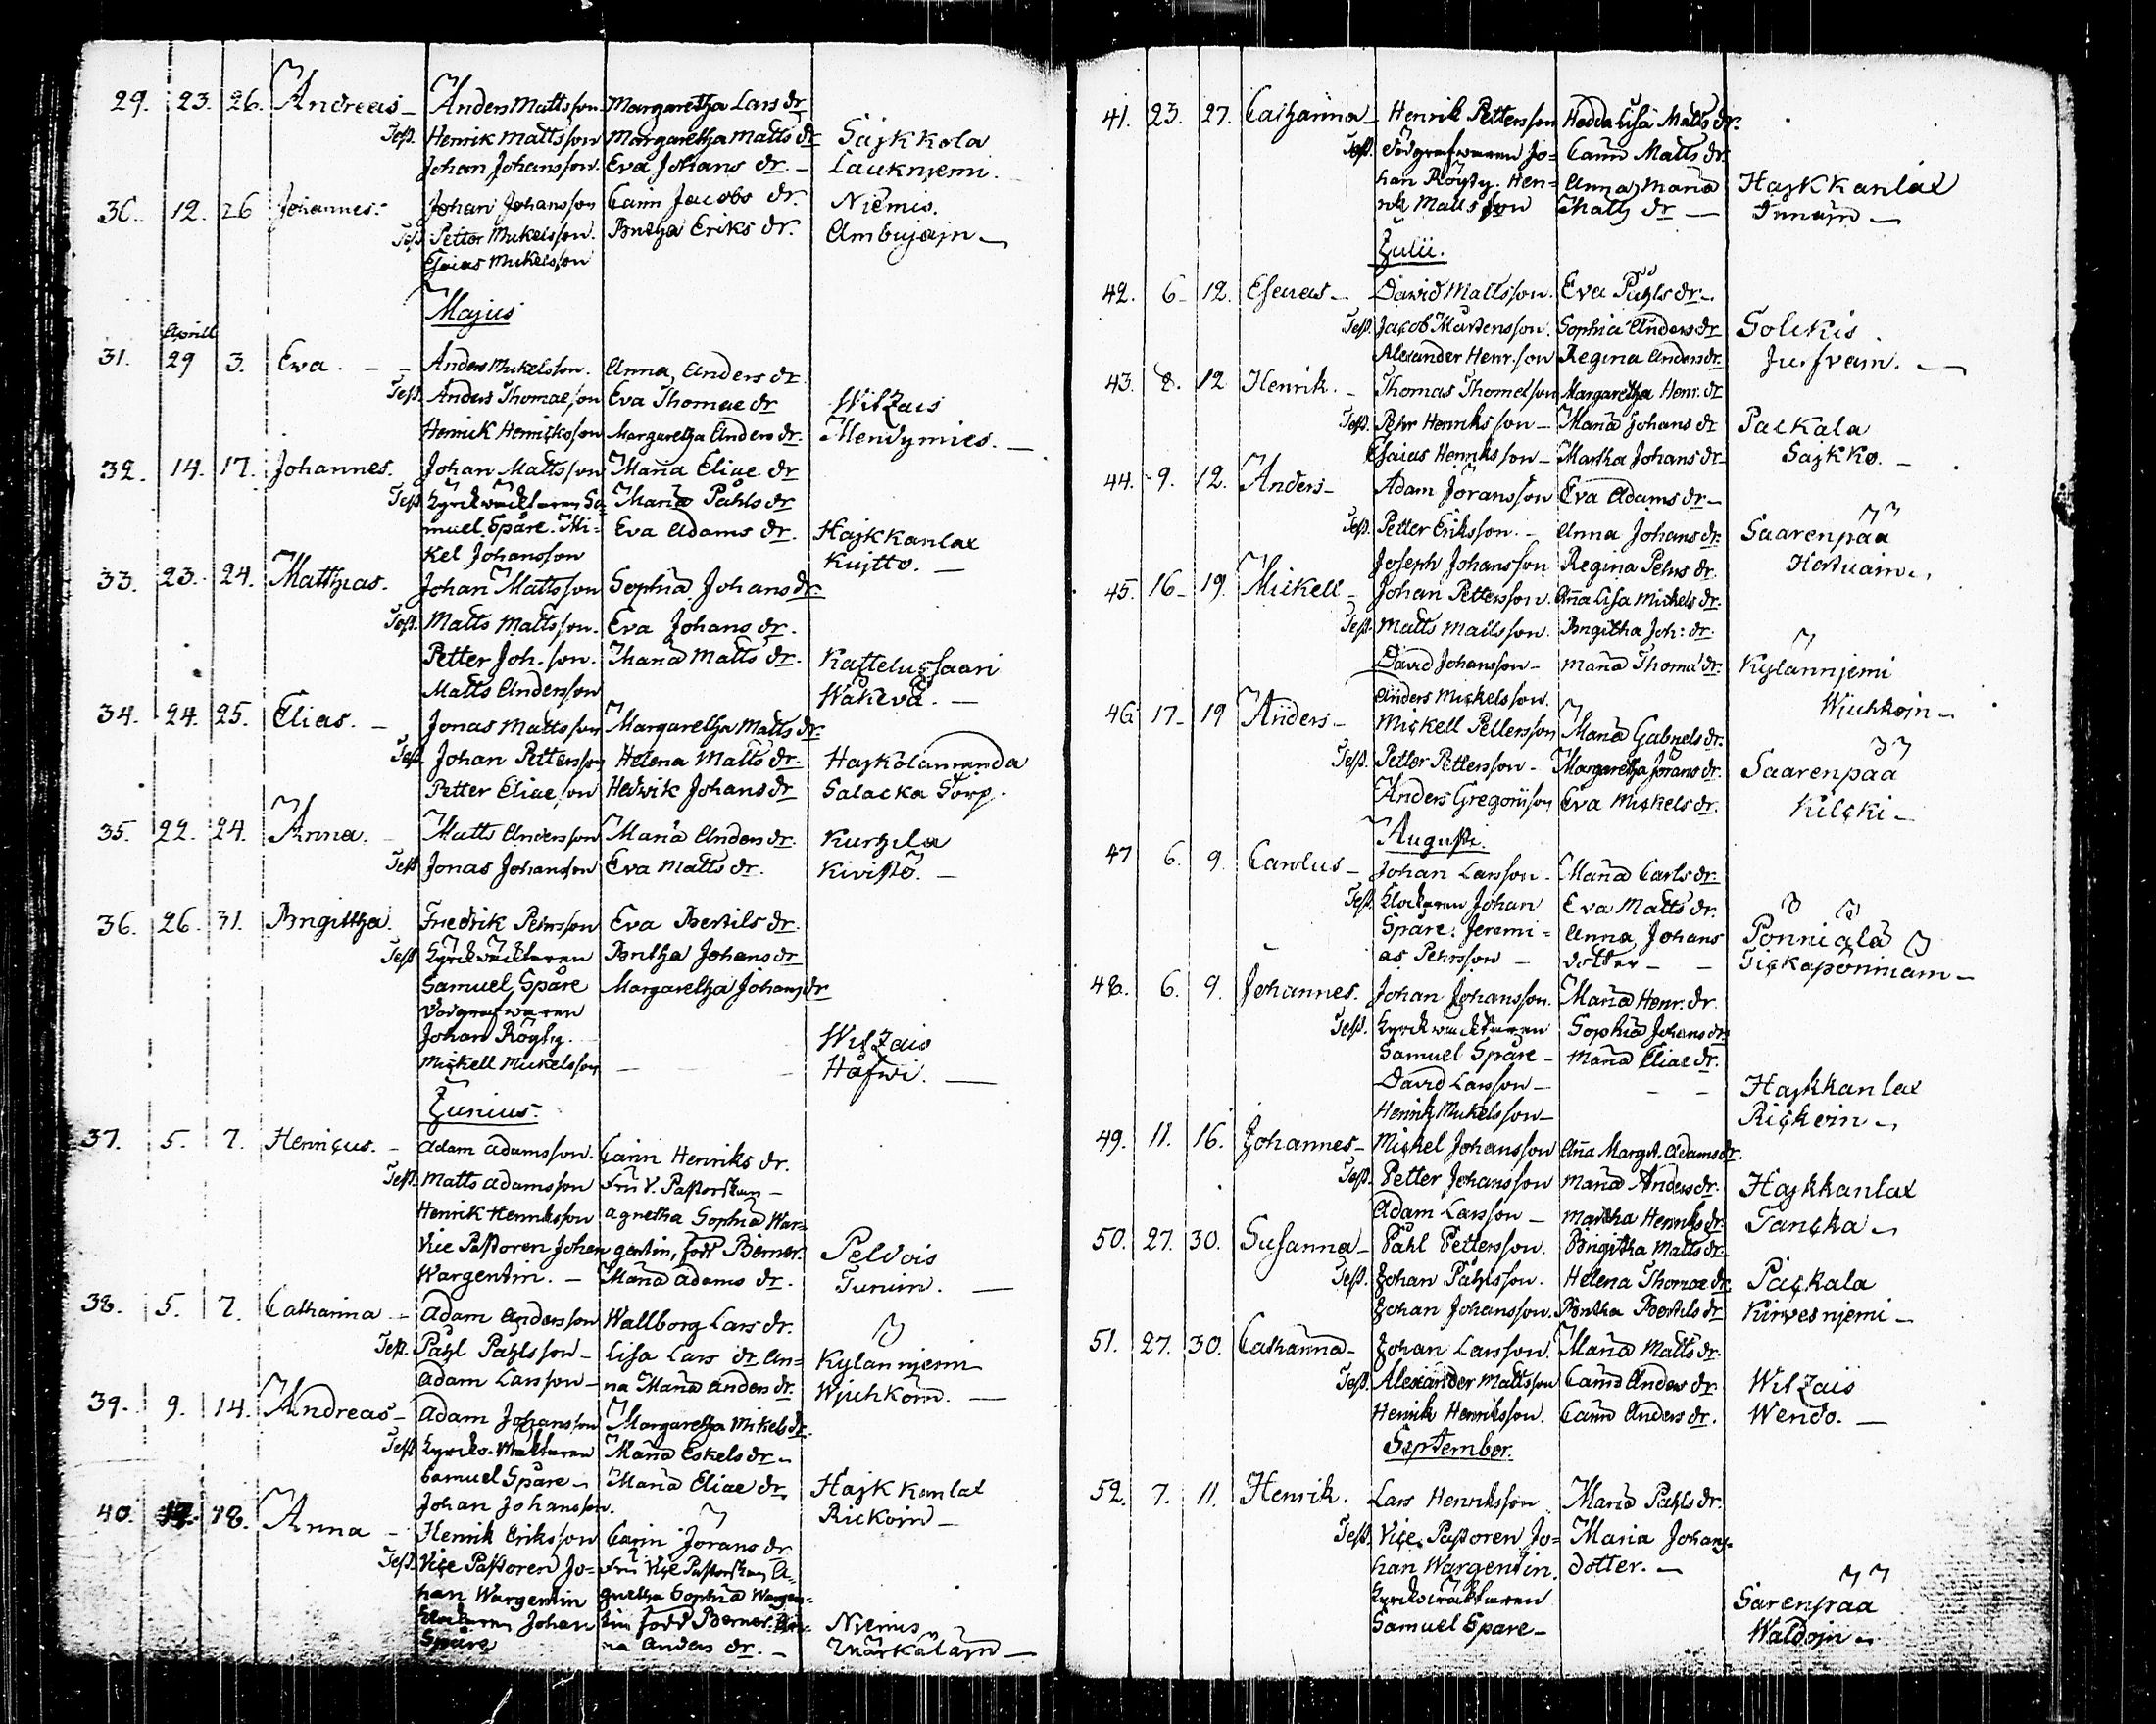 29. 23. 26. Andreas – Anders Mattsson Margaretha Lars dr
Test. Henrik Mattsson Margaretha Matts dr Sajkkola
Johan Johansson. Eva Johans dr. – Lauknjemi.
30. 12. 26 Johannes. Johan Johansson Carin Jacobs dr. Niemis.
Test. Petter Mickelsson. Britha Eriks dr. Ambujajn –
Esaias Mickelsson
Majus
Aprill
31. 29 3. Ewa. – – Anders Mickelson. Anna Anders dr
Test. Anders Thomæson Eva Thomæ dr Wilzais
Henrick Henricksson Margaretha Anders dr. Mendymies. –
32. 14. 17. Johannes. Johan Mattsson Maria Eliæ dr
Test. Kyrckwäcktaren Sa- Maria Påhls dr
muel Spåre. Mi- Eva Adams dr. Hajkkanlax
kel Johansson Kujtto. –
33. 23. 24. Matthias. Johan Mattsson Sophia Johans dr
Test. Matts Mattsson. Eva Johans dr.
Petter Joh. son. Maria Matts dr. Kattelussaari
Matts Andersson Wakeva. –
34. 24. 25. Elias. – Jonas Mattsson Margaretha Matts dr.
Test. Johan Pettersson Helena Matts dr. Hajkolanranda
Petter Eliæson Hedwik Johans dr Salacka Torp.
35. 22. 24. Anna. – Matts Andersson Maria Anders dr. Kurhila
Test Jonas Johansson Eva Matts dr. Kivistö. –
36. 26. 31. Brigittha. Fredrik Pehrsson Eva Bertils dr.
Test Kyrckwäcktaren Britha Johans dr
Samuel Spåre Margaretha Johans dr
Dödgrafwaren
Johan Röyty. Wilzais
Mickell Mickelsson – – Hafwi. –
Junius.
37. 5. 7. Henricus. – Adam Adamsson. Carin Henriks dr.
Test. Matts Adamsson Fru V. Pastorskan –
Henrik Henriksson Agnetha Sophia War=
Vice Pastoren Johan gentin, född Bierner. Peldois
Wargentin. – Maria Adams dr. Tunim. –
38. 5. 7. Catharina – Adam Andersson Wallborg Lars dr.
Test. Påhl Påhlsson – Lisa Lars dr An= Kylännjemi
Adam Larsson – na Maria Anders dr. Wjuhkoin. –
39. 9. 14. Andreas – Adam Johansson Margaretha Mikels dr.
Test Kyrcko-Wäktaren Maria Eskels dr –
Samuel Spåre – Maria Eliæ dr Hajkkanlax
Johan Johansson. Rickoin –
40. 18. Anna – Henrik Eriksson Carin Jörans dr
Test. Vice Pastoren Jo- Fru Vice Pastorskan A-
han Wargentin gnetha Sophia Wargen-
Klockaren Johan tin född Berner. An-
Spåre na Anders dr. – Niemis
Märkäläjn –
41. 23. 27. Catharina – Henrik Pettersson Hedda Lisa Matts dr.
Test. Dödgrafwaren Jo- Carin Matts dr.
han Röyty. Hen= Anna Maria Hajkkanlax
rik Mattsson Matts dr – Innajn –
Julii.
42. 6 – 12. Esaias – David Mattsson. Eva Påhls dr –
Test. Jacob Mårtensson. Sophia Anders dr Solckis
Alexander Henr. son Regina Anders dr.
43. 8. 12 Henrik. – Thomas Thomesson Margaretha Henr. dr
Test. Pehr Henriksson – Maria Johans dr Packala
Esaias Henriksson – Martha Johans dr – Sajkko. –
44. 9. 12. Anders – Adam Joransson Eva Adams dr –
Test. Petter Eriksson. – Anna Johans dr. Saarenpää
Joseph Johansson Regina Pehrs dr. Hortuain –
45. 16 – 19. Mickell – Johan Pettersson. Aña Lisa Mickels dr.
Test. Matts Mattsson. Brigitha Joh: dr.
David Johansson – Maria Thomæ dr. Kylännjemi
Anders Mickelsson. Wjuhkojn –
46 17 – 19 Anders – Mickell Pettersson Maria Gabriels dr.
Test. Petter Pettersson – Margaretha Jörans dr. Saarenpää
Anders Gregorisson Eva Mickels dr. Kilcki –
Augusti.
47 6. 9. Carolus – Johan Larsson – Maria Carls dr.
Test. Klockaren Johan Eva Matts dr.
Spåre. Jeremi= Anna Johans Pönniälä
as Pehrsson – dotter – – Tickapönniäin –
48. 6. 9. Johannes. Johan Johansson. Maria Henr. dr.
Test. Kyrckwäcktaren Sophia Johans dr.
Samuel Spåre – Maria Eliæ dr.
David Larsson – – – Hajkkanlax
Henrik Mickelsson – Rickoin –
49. 11. 16. Johannes – Mickel Johansson Aña Margt. Adams dr.
Test. Petter Johansson Maria Anders dr. Hajkkanlax
Adam Larsson – Martha Henriks dr. Tancka –
50. 27. 30. Susanna – Påhl Pettersson. Brigitha Matts dr –
Test. Johan Påhlsson. Helena Thomæ dr. Packala
Johan Johansson. Britha Bertils dr Kirvesnjemi –
51. 27. 30. Catharina – Johan Larsson. Maria Matts dr.
Test. Alexander Mattsson Carin Anders dr Wilzais
Henrik Henriksson. Carin Anders dr. Wendo. –
September.
52. 7. 11. Henrik. Lars Henriksson Maria Påhls dr.
Test. Vice Pastoren Jo= Maria Johans
han Wargentin. dotter. –
Kyrckowäktaren Sarenpää
Samuel Spare – Waldojn –